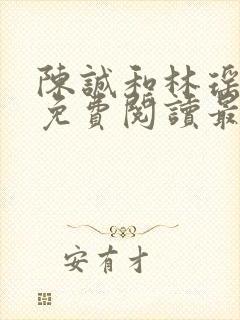 陳誠和林瑤
免費閱讀最
安有才